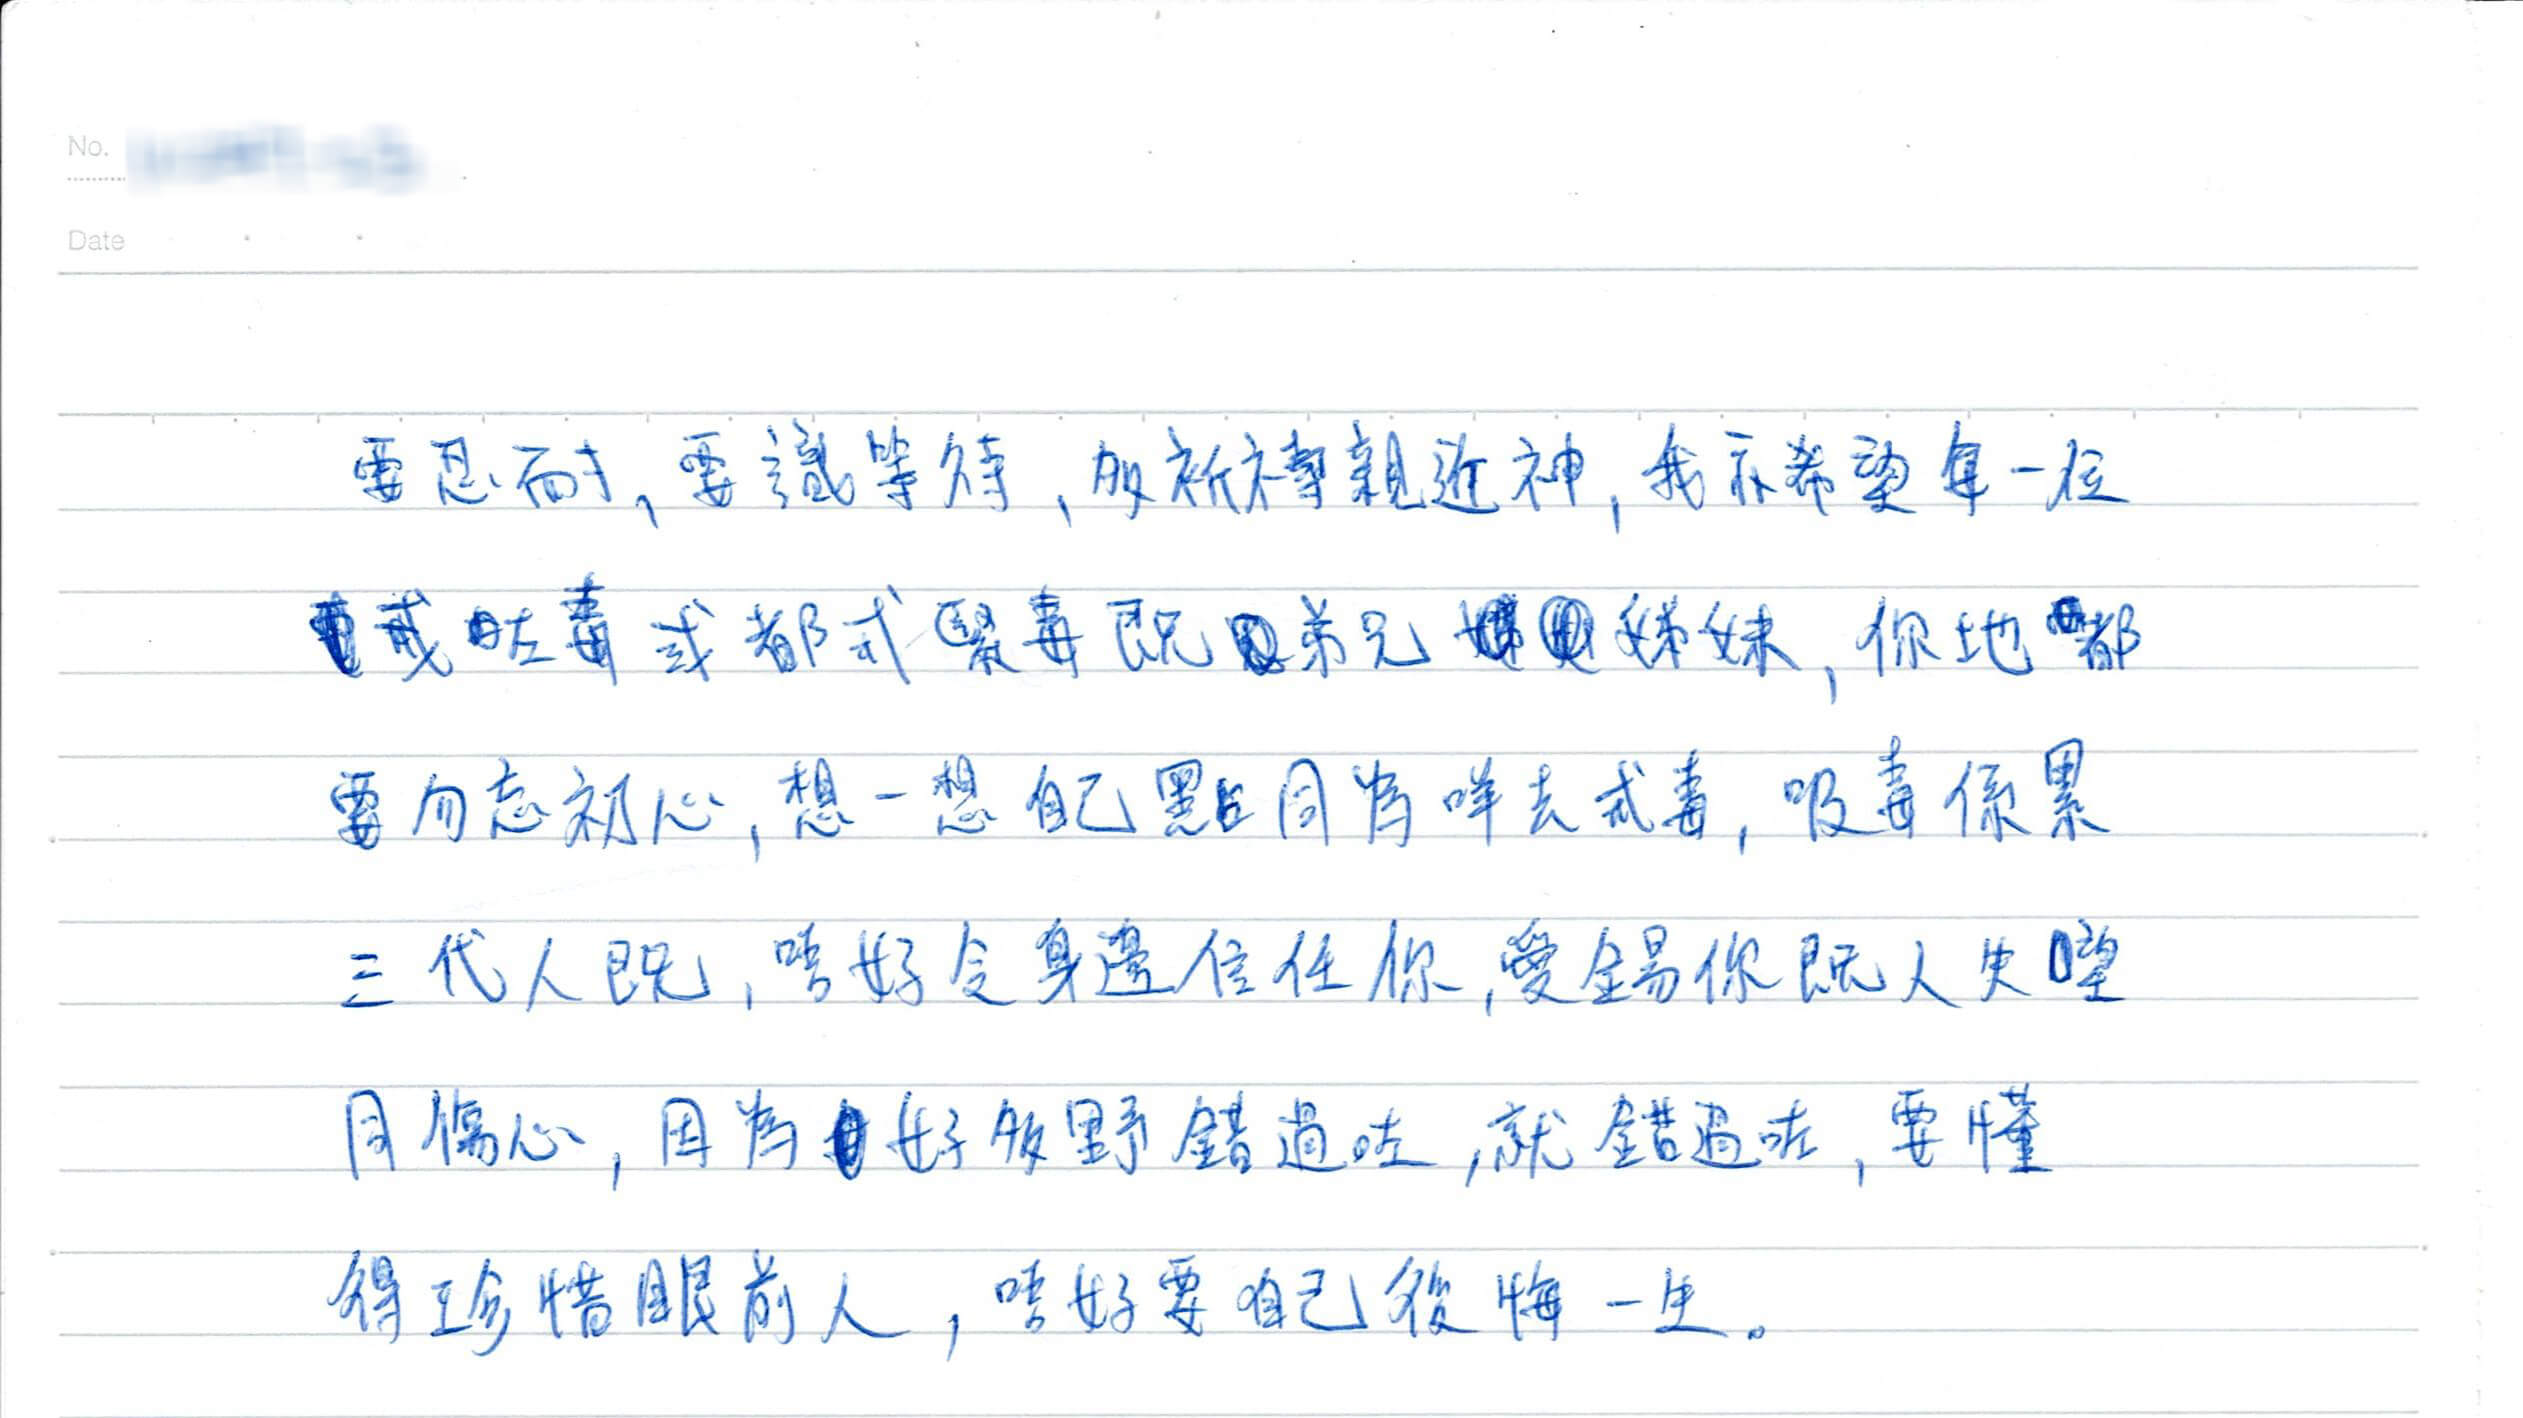 No.
Date
要忍耐,要識等待,多祈禱親近神,我亦希望每一位
戒咗毒或都戒緊毒既弟兄姊妹,你地都
要勿忘初心,想一想自己點同為咩去戒毒,吸毒係累
三代人既,唔好令身邊信任你,愛錫你既人失望
同傷心,因為好多野錯過咗,就錯過咗,要懂
得珍惜眼前人,唔好要自己後悔一生。